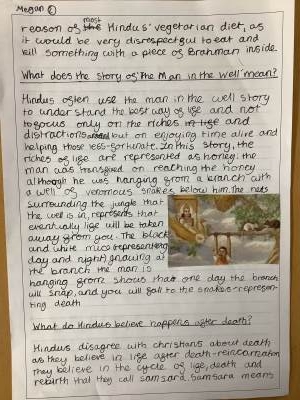 Megan
reason of most Hindus' vegetarian diet, as
it would be very disrespectful to eat and
kill something with a piece of Brahman inside.
What does the story of 'The Man in the Well' mean?
Hindus often use the man in the well story
to understand the best way of life and not
to focus only on the riches in life and
distractions but on enjoying time alive and
helping those less-fortunate. In this story, the
riches of life are represented as honey. the
man was transfixed on reaching the honey
although he was hanging from a branch with
a well of venomous snakes below him. The
surrounding the jungle that
the well is in, represents that
eventually life will be taken
away from you. The black
and white mice representing
day and night gnawing at
the branch the man is
hanging from shows that one day the branch
will snap, and you will fall to the snakes - represen-
ting death
What do Hindus believe happens after death?
Hindus disagree with christians about death
as they believe in life after death - reincarnation
they believe in the cycle of life, death and
rebirth that they call samsara. Samsara means